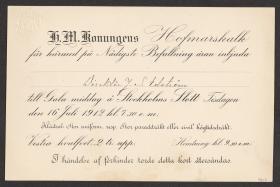 H. M. Konungens Hofmarskalk
får härmed på Nådigste Befallning äran inbjuda
Direktör J. S. Edström
till Gala middag å Stockholms Slott Tisdagen
den 16 Juli 1912 kl 7.30 e.m.
Klädsel: Stor uniform resp. Stor paraddräkt eller civil högtidsdräkt.
Vestra hvalfvet 2 tr. upp. Hemkörng kl 9.30 e.m.
I händelse af förhinder torde detta kort återsändas.